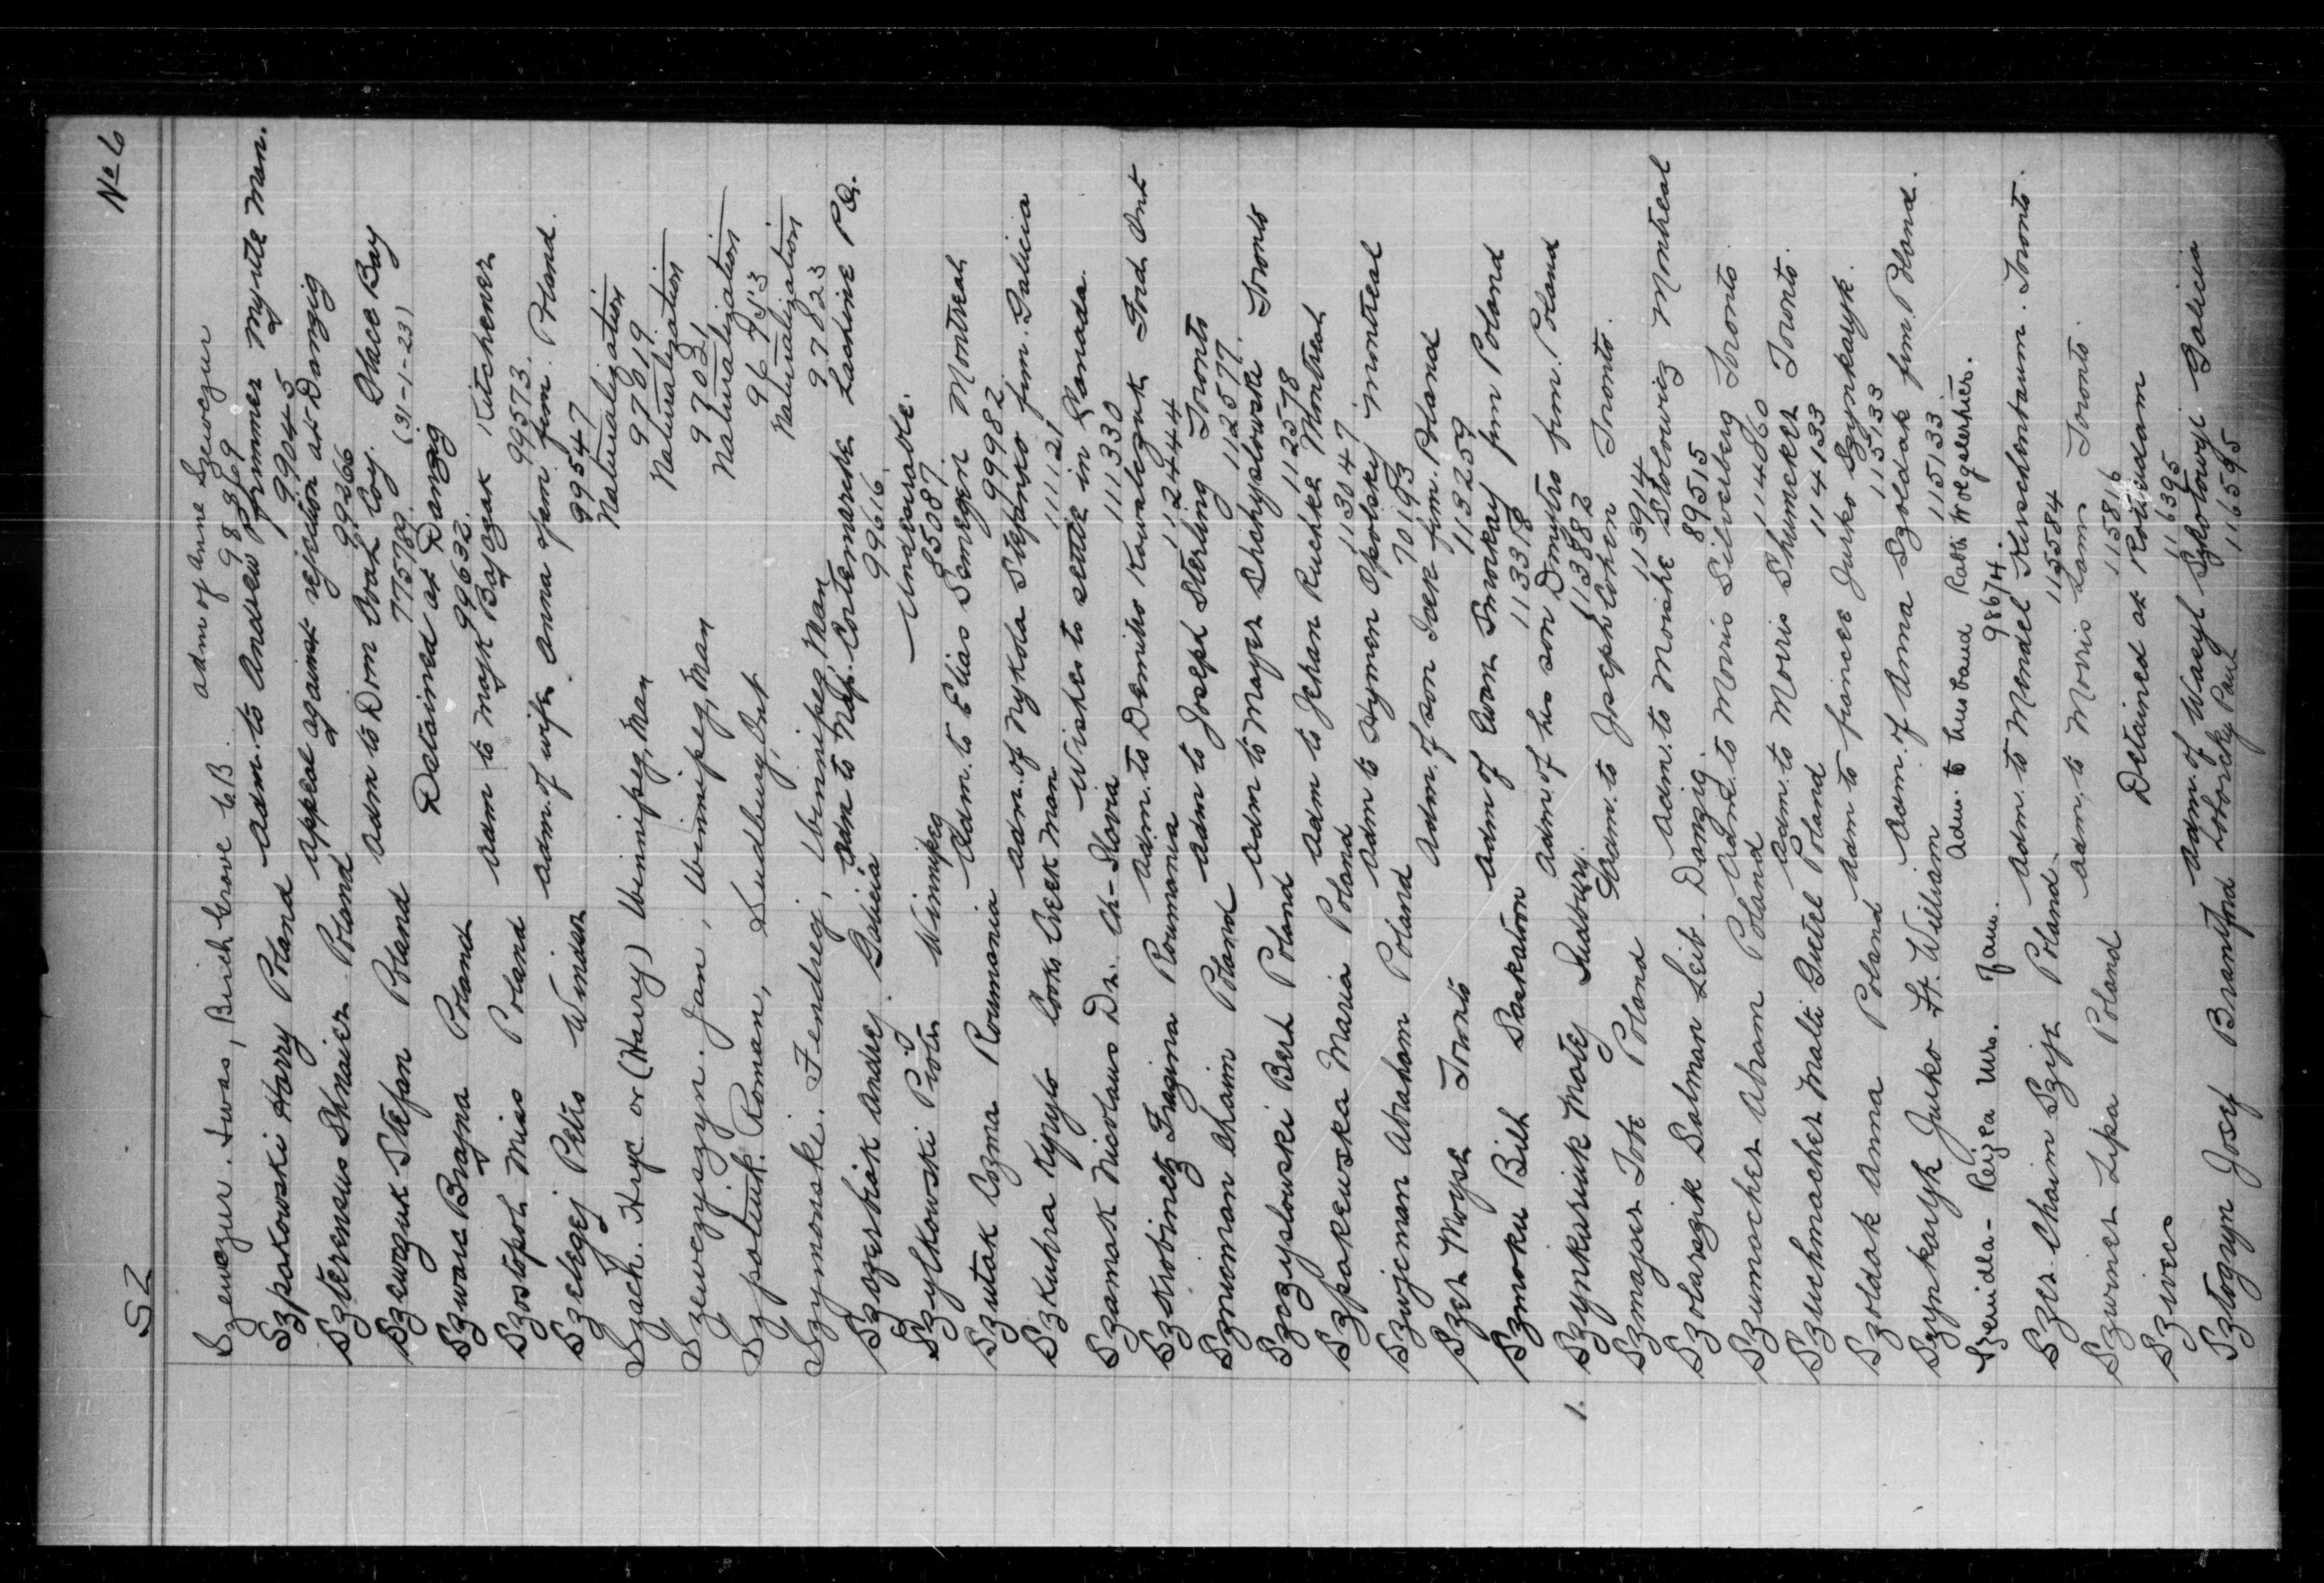 SZ No 6
Szewczur. Iwas, Birch Grove C.B. adm of Anne Szewczur
98369
Szpakowski Harry Poland adm. to Andrew Prummer Myrtle Man.
99045
Szterensus Shmaier Poland appeal against rejection at Danzig
99266
Szewczuk Stefan Poland adm to Dom Coal Coy. Glace Bay
775789 (31-1-23)
Szwarc Brajna Poland Detained at Danzig
99632
Szostopol Miss Poland adm to Majk Bajczak Kitchener
99573.
Szelegej Petro Windsor adm. of wife Anna & fam. from Poland.
99547
Szach. Hryc or (Harry) Winnipeg, Man Naturalization
97619
Szewczyszyn. Jan, Winnipeg, Man Naturalization
97031
Szpotiuk. Roman, Sudbury, Ont Naturalization
96753
Szymonski. Fendreij, Winnipeg, Man Naturalization
97823
Szagerbiak Andrej. Galicia adm to Nap. Cortemarche Lachine P.Q.
99616
Szylkowski Piotr Winnipeg Undesirable.
85087
Szutak Cozma Roumania Adm. to Elias Semegen Montreal
99982
Szkuhra Kyrylo Cooks Creek Man adm. of Nykola Stefansko from. Galicia
111121
Szamak Nicolaus Dr. Ch-Slovia Wishes to settle in Canada.
111330
Szkrobinetz Fragina Roumania adm. to Demitro Kowalczuk Ford Ont
112444
Sznuoman Chaim Poland adm to Joseph Sterling Toronto
112577
Szczyslowski Berl Poland adm to Mayer Shchyslowski Toronto
112578
Szpakewska Maria Poland adm to Jehan Ruchke Montreal
113047
Szwjeman Abraham Poland adm to Hymen Opolsky Montreal
70193
Szer Moyse Toronto adm. of son Icek from. Poland
113259
Szmoku Bill Saskatoon adm of Ewan Smokay from Poland
113318
1. Szynkariuk Motej Sudbury. adm. of his son Dmytro from. Poland
113882
Szmajser Tobe Poland adm. to Joseph Cohen Toronto.
113914
Szolarszik Salman Leib. Danzig. adm. to Moishe Stolowicz Montreal
89515
Szumacher Abram Poland adm. to Morris Silverberg Toronto.
114860
Szuchmacher Malti Guitel Poland adm. to Morris Shumeker Toronto.
114133
Szoldak Anna Poland adm to fiancee Jurko Szynkaryk.
115133
Szynkaryk Jurko Ft. William adm. of Anna Szoldak from. Poland.
115133
Szenidla - Rejza Mrs. & fam. adm. to husband Rabbi Wolgelerhter.
98674.
Szer Chaim Szija Poland adm. to Mendel Kirschenbaum. Toronto.
115584
Szwiner Lipa Poland adm. to Morris Lann Toronto.
115816
Szivecs Detained at Rotterdam
116395
Sztogryn Josef Brantford adm. of Wasyl Szkotowyi Galicia
Loborcky Paul 116595